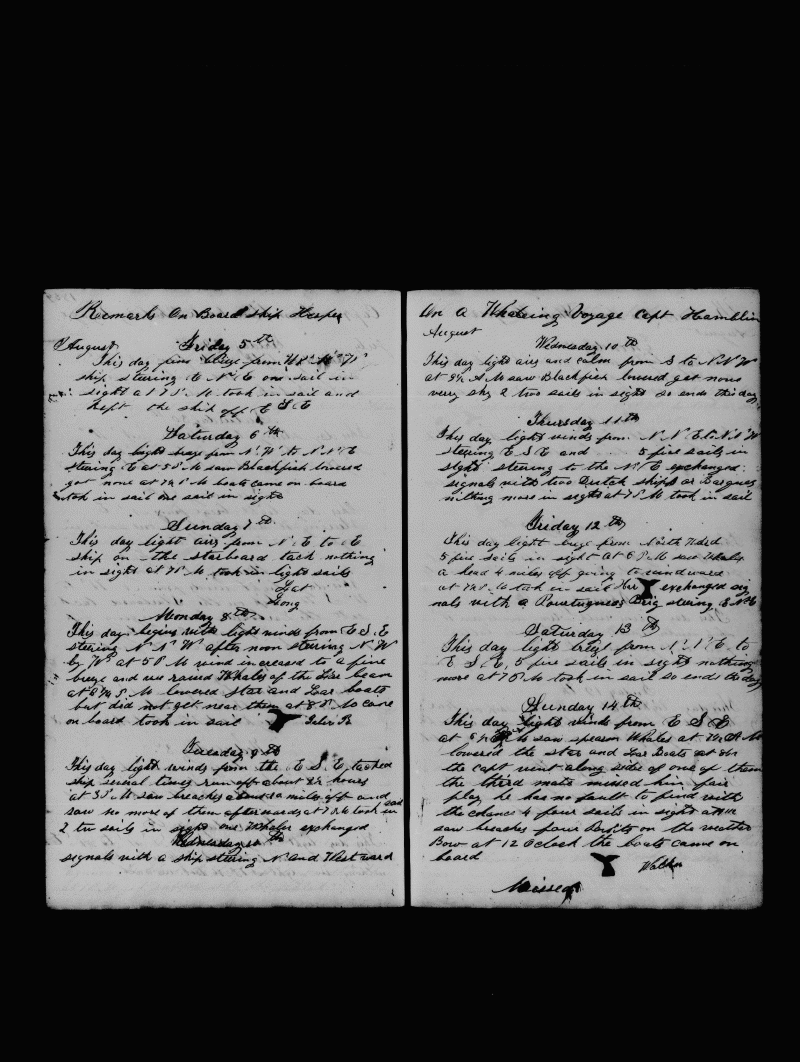 Remark On Board ship Hesper
August Friday 5th
This day fine breeze from
ship steering E N E one sail in
sight at 7 P M took in sail and
kept the ship off E S E
Saturday 6th
This day light breze from N W to N N E
steering E at 5 P M saw Blackfish lowered
got none at 7½ P M boats came on board
took in sail one sail in sight
Sunday 7th
This day light airs from N E to E
ship on the starboard tack nothing
in sight at 7 P M took in light sails
Lat
Long
Monday 8th
This day begins with light winds from E S E
steering N N W after noon steering N W
by W at 5 P M wind increased to a fine
breeze and we raised Whales of the Lee beam
at 6¼ P M lowered star and Lar boats
but did not get near them at 8 P M came
on board took in sail
Tuesday 9th
This day light winds from the E S E tacked
ship several times run off about 2½ hours
at 3 P M saw breaches about 10 miles off and
saw no more of them afterwards at 7 P M took in sail
2 sails in sight one Whaler exchanged
Wednesday 10th
signals with a ship steering N and Westward
On A Whaleing Voyage Capt Hamblin
August
Wednesday 10th
This day light airs and calm from S to N N W
at 9½ A M saw Blackfish lowered got none
very shy 2 two sails in sight so ends this day
Thursday 11th
This day light winds from N N E to N N W
steering E S E and 5 five sails in
sight steering to the N E exchanged
signals with two Dutch ships or Barques
nothing more in sight at 7 P M took in sail
Friday 12th
This day light breze from North Ward
5 five sails in sight at 6 P M saw Whales
a head 4 miles off going to windward
at 7½ P M took in sail exchanged sig
nals with a Pourtuguees Brig steering E N E
Saturday 13th
This day light breze from N N E to
E S E, 5 five sails in sight nothing
more at 7 P M took in sail so ends the day
Sunday 14th
This day light winds from E S E
at 6½ saw sperm Whales at 7½ A M
lowered the star and Lar Boats at 8½
the capt went along side of one of them
the third mate missed him fair
play he has no fault to find with
the chance 4 four sails in sight
saw breaches four Points on the weather
Bow at 12 Oclock the boats came on
board
Missed